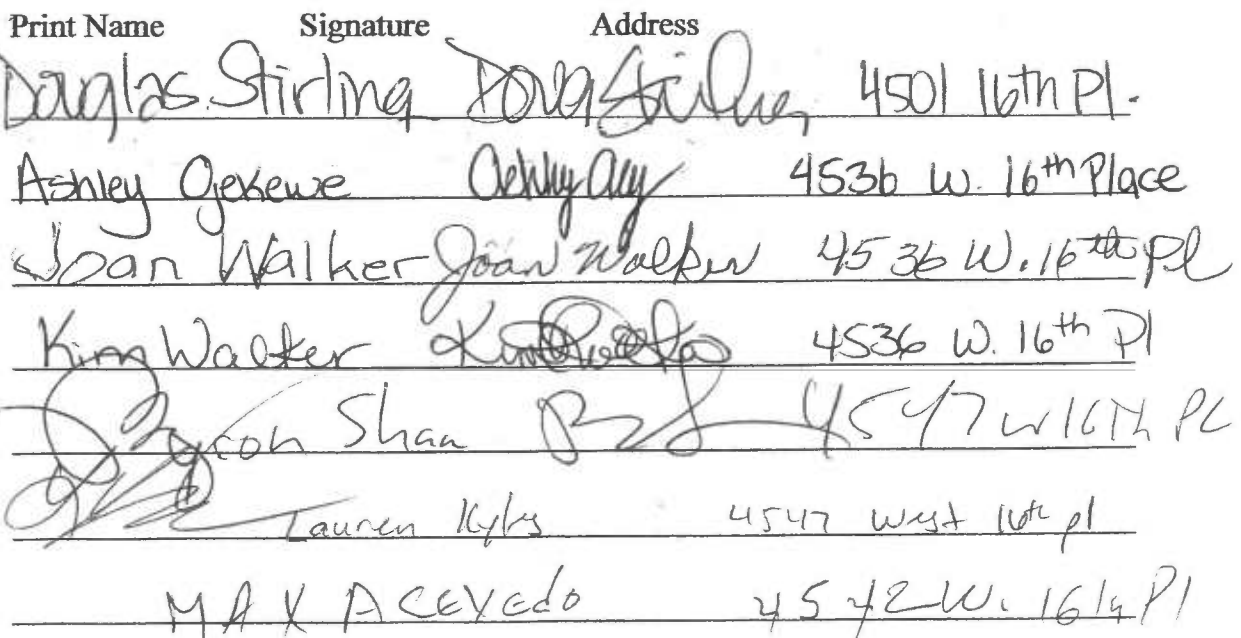 Print Name Signature Address
Douglas Stirling Doug Stirling 4501 16th Pl.
Ashley Ojekewe Ashley 4536 W. 16th Place
Joan Walker Joan Walker 4536 W. 16th Pl
Kim Walker Kim 4536 W. 16th Pl
Byron Shaw 4547 W 16Th PL
Lauren Kyles 4547 West 16th pl
MAX ACEVEdo 4542 W. 16th Pl